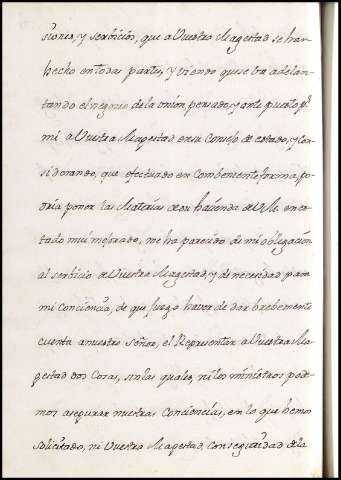 siones, y servicios, que a Vuestra Magestad se han
hecho en todas partes, y viendo que se va adelan-
tando el negocio de la union, pensado, y ante puesto pr.
mi a Vuestra Magestad en su Consejo de estado, y Con-
siderando, que efectuado en Combeniente forma, po-
dria poner las Materias de su hacienda de V.M. en es-
tado mui mejorado, me ha parecido de mi obligacion
al servicio de Vuestra Magestad, y de necesidad para
mi Conciencia, de que juzgo haver de dar brebemente
cuenta a nuestro Señor, el Representar a Vuestra Ma-
gestad dos Cosas, sin las quales, ni los ministros pode-
mos asegurar nuestras Conciencias, en lo que hemos
solicitado, ni Vuestra Magestad, con seguridad de la